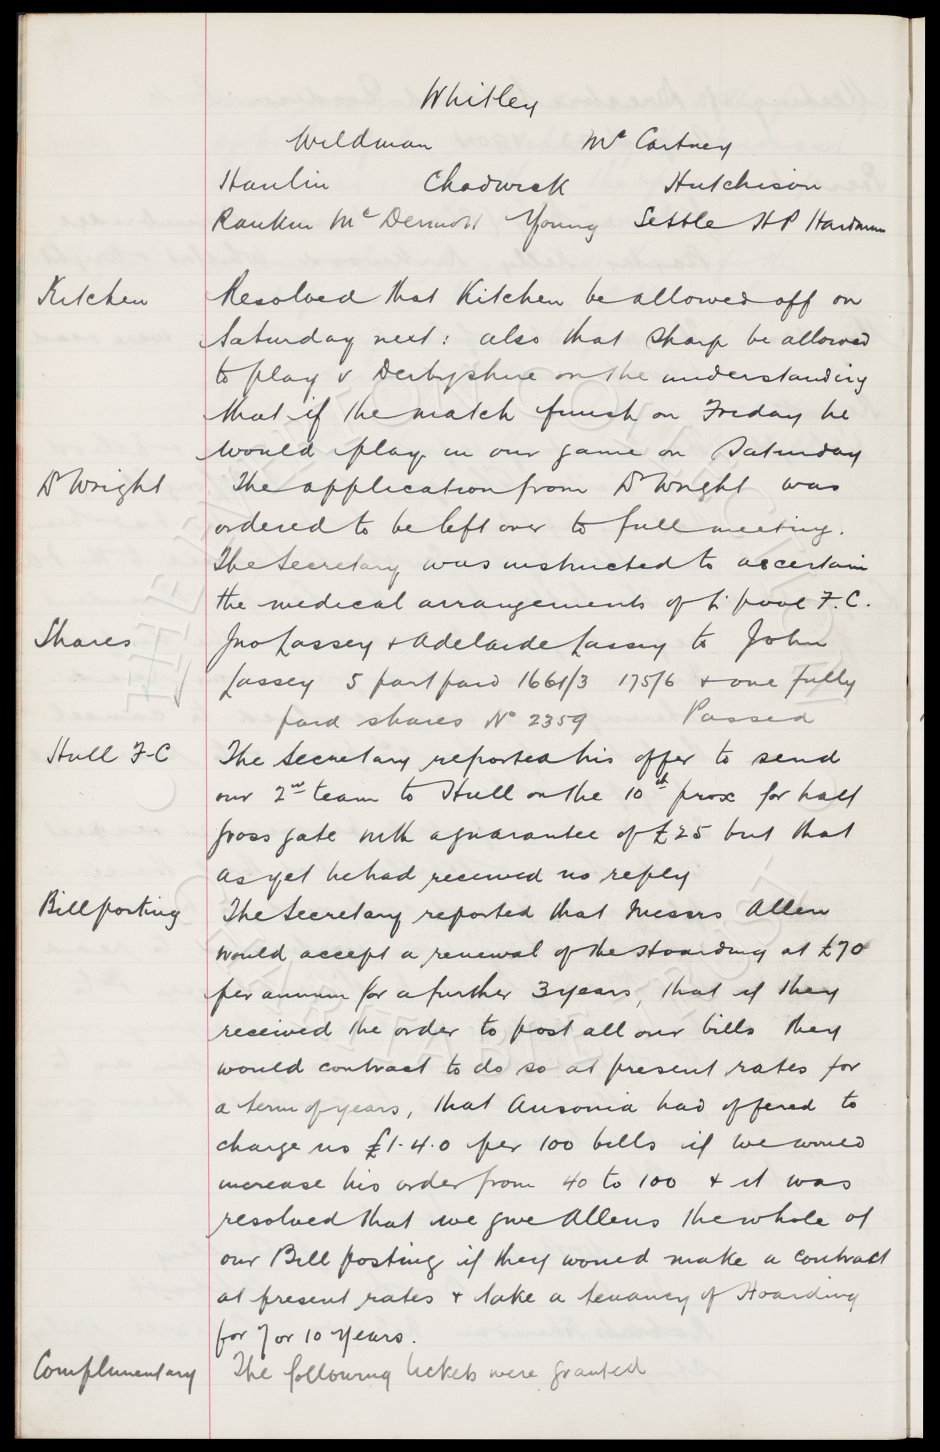 Whitley
Wildman Mc Cartney
Hanlin Chadwick Hutchison
Rankin Mc Dermott Young Settle H P Hardman
Kitchen Resolved that Kitchen be allowed off on
Saturday next: also that Sharp be allowed
to play v Derbyshire on the understanding
that if the match finish on Friday he
would play in our game on Saturday
Dr Wright The application from Dr Wright was
ordered to be left over to full meeting.
The Secretary was instructed to ascertain
the medical arrangements of L'pool F.C.
Shares Jno Lassey & Adelaide Lassey to John
Lassey 5 part paid 1661/3 175/6 & one fully
paid shares No 2359 Passed
Hull F.C The Secretary reported his offer to send
our 2nd team to Hull on the 10th prox for half
gross gate with a guarantee of £25 but that
as yet he had received no reply
Billposting The Secretary reported that Messrs Allen
would accept a renewal of the Hoarding at £70
per annum for a further 3 years, that if they
received the order to post all our bills they
would contract to do so at present rates for
a term of years, that Ausonia had offered to
charge us £1.4.0 per 100 bills if we would
increase his order from 40 to 100 & it was
resolved that we give Allens the whole of
our Bill posting if they would make a contract
at present rates & take a tenancy of Hoarding
for 7 or 10 years.
Complimentary The following tickets were granted